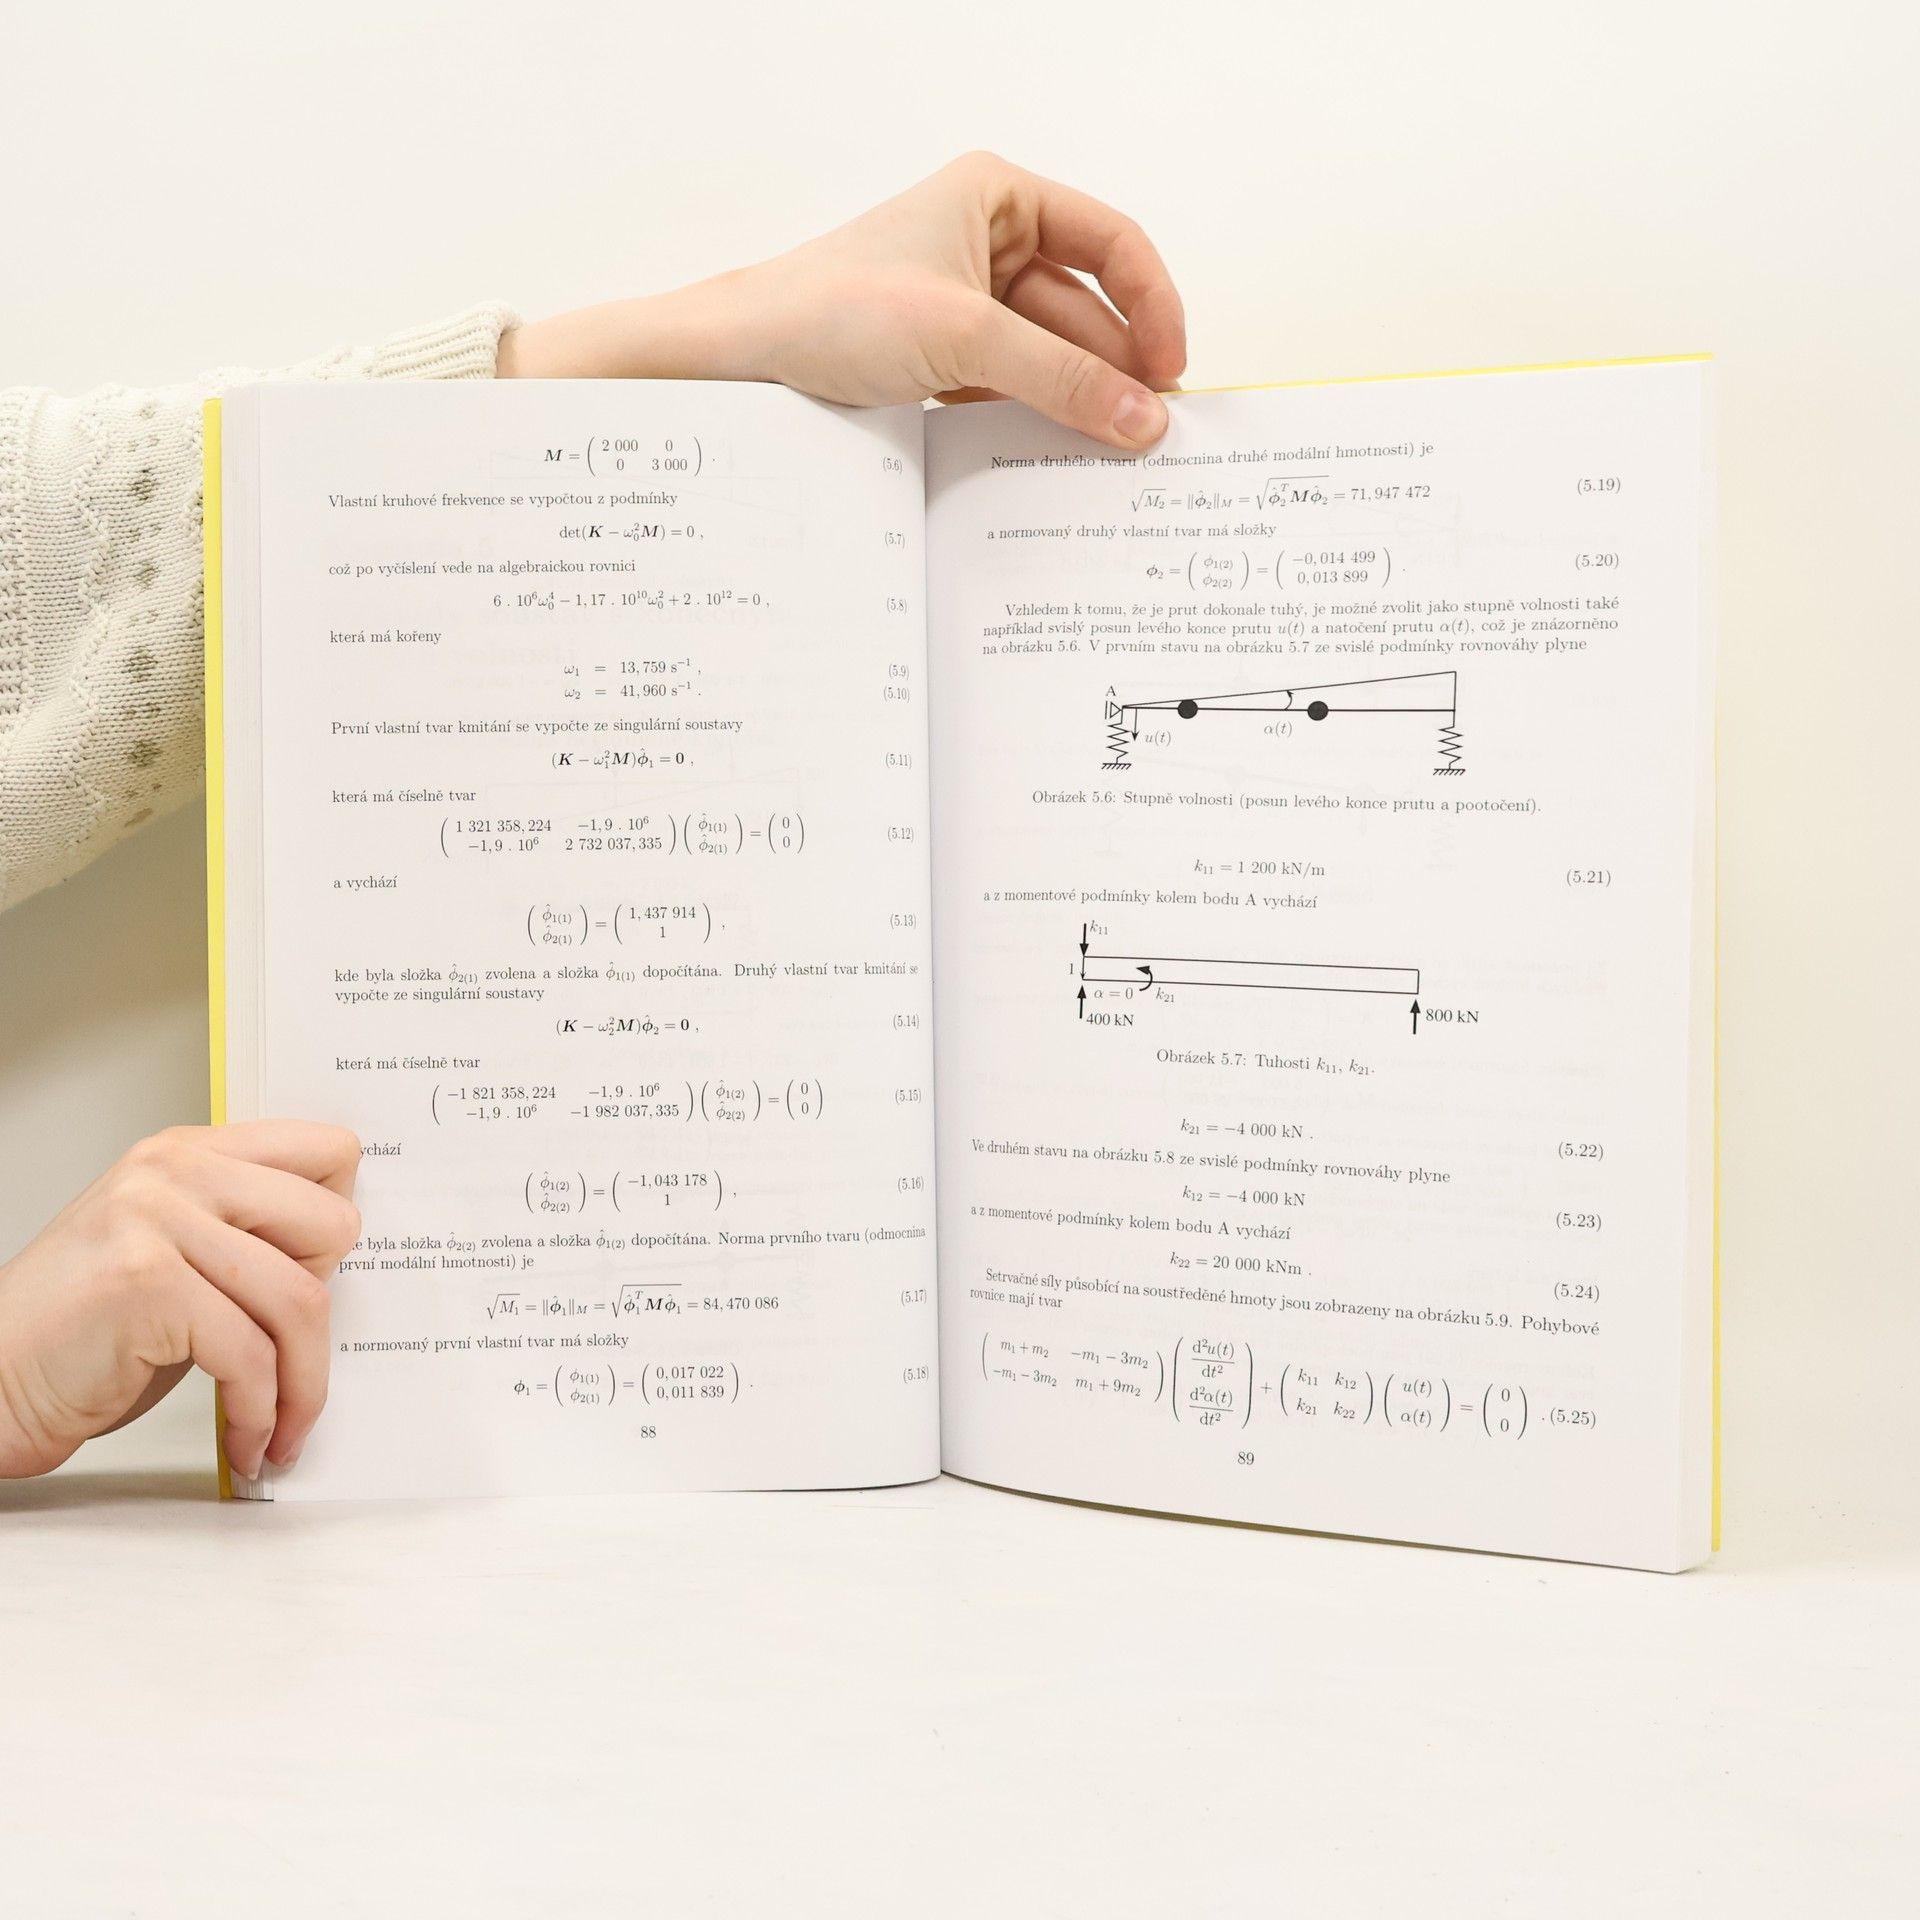 M = ( 2 000 0 ) .
( 0 3 000 ) (5.6)
Vlastní kruhové frekvence se vypočtou z podmínky
det(K − ω₀²M) = 0 , (5.7)
což po vyčíslení vede na algebraickou rovnici
6 . 10⁶ω₀⁴ − 1,17 . 10¹⁰ω₀² + 2 . 10¹² = 0 , (5.8)
která má kořeny
ω₁ = 13,759 s⁻¹ , (5.9)
ω₂ = 41,960 s⁻¹ . (5.10)
První vlastní tvar kmitání se vypočte ze singulární soustavy
(K − ω₁²M)ϕ̂₁ = 0 , (5.11)
která má číselně tvar
( 1 321 358,224 −1,9 . 10⁶ ) ( ϕ̂₁₍₁₎ ) = ( 0 )
( −1,9 . 10⁶ 2 732 037,335 ) ( ϕ̂₂₍₁₎ ) ( 0 ) (5.12)
a vychází
( ϕ̂₁₍₁₎ ) = ( 1,437 914 ) ,
( ϕ̂₂₍₁₎ ) ( 1 ) (5.13)
kde byla složka ϕ̂₂₍₁₎ zvolena a složka ϕ̂₁₍₁₎ dopočítána. Druhý vlastní tvar kmitání se
vypočte ze singulární soustavy
(K − ω₂²M)ϕ̂₂ = 0 , (5.14)
která má číselně tvar
( −1 821 358,224 −1,9 . 10⁶ ) ( ϕ̂₁₍₂₎ ) = ( 0 )
( −1,9 . 10⁶ −1 982 037,335 ) ( ϕ̂₂₍₂₎ ) ( 0 ) (5.15)
ychází
( ϕ̂₁₍₂₎ ) = ( −1,043 178 ) ,
( ϕ̂₂₍₂₎ ) ( 1 ) (5.16)
e byla složka ϕ̂₂₍₂₎ zvolena a složka ϕ̂₁₍₂₎ dopočítána. Norma prvního tvaru (odmocnina
první modální hmotnosti) je
√M₁ = ||ϕ̂₁||_M = √(ϕ̂₁ᵀMϕ̂₁) = 84,470 086 (5.17)
a normovaný první vlastní tvar má složky
ϕ₁ = ( ϕ₁₍₁₎ ) = ( 0,017 022 ) .
( ϕ₂₍₁₎ ) ( 0,011 839 ) (5.18)
88
Norma druhého tvaru (odmocnina druhé modální hmotnosti) je
√M₂ = ||ϕ̂₂||_M = √(ϕ̂₂ᵀMϕ̂₂) = 71,947 472 (5.19)
a normovaný druhý vlastní tvar má složky
ϕ₂ = ( ϕ₁₍₂₎ ) = ( −0,014 499 ) .
( ϕ₂₍₂₎ ) ( 0,013 899 ) (5.20)
Vzhledem k tomu, že je prut dokonale tuhý, je možné zvolit jako stupně volnosti také
například svislý posun levého konce prutu u(t) a natočení prutu α(t), což je znázorněno
na obrázku 5.6. V prvním stavu na obrázku 5.7 ze svislé podmínky rovnováhy plyne
A
u(t)
α(t)
Obrázek 5.6: Stupně volnosti (posun levého konce prutu a pootočení).
k₁₁ = 1 200 kN/m (5.21)
a z momentové podmínky kolem bodu A vychází
k₁₁
1
α = 0
k₂₁
400 kN
800 kN
Obrázek 5.7: Tuhosti k₁₁, k₂₁.
k₂₁ = −4 000 kN . (5.22)
Ve druhém stavu na obrázku 5.8 ze svislé podmínky rovnováhy plyne
k₁₂ = −4 000 kN (5.23)
a z momentové podmínky kolem bodu A vychází
k₂₂ = 20 000 kNm . (5.24)
Setrvačné síly působící na soustředěné hmoty jsou zobrazeny na obrázku 5.9. Pohybové
rovnice mají tvar
( m₁ + m₂ −m₁ − 3m₂ ) ( d²u(t)/dt² ) + ( k₁₁ k₁₂ ) ( u(t) ) = ( 0 )
( −m₁ − 3m₂ m₁ + 9m₂ ) ( d²α(t)/dt² ) ( k₂₁ k₂₂ ) ( α(t) ) ( 0 ) . (5.25)
89